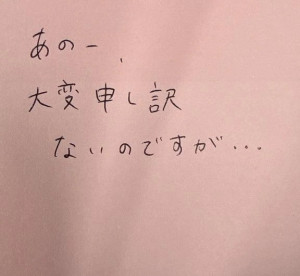 あのー、
大変申し訳
ないのですが...